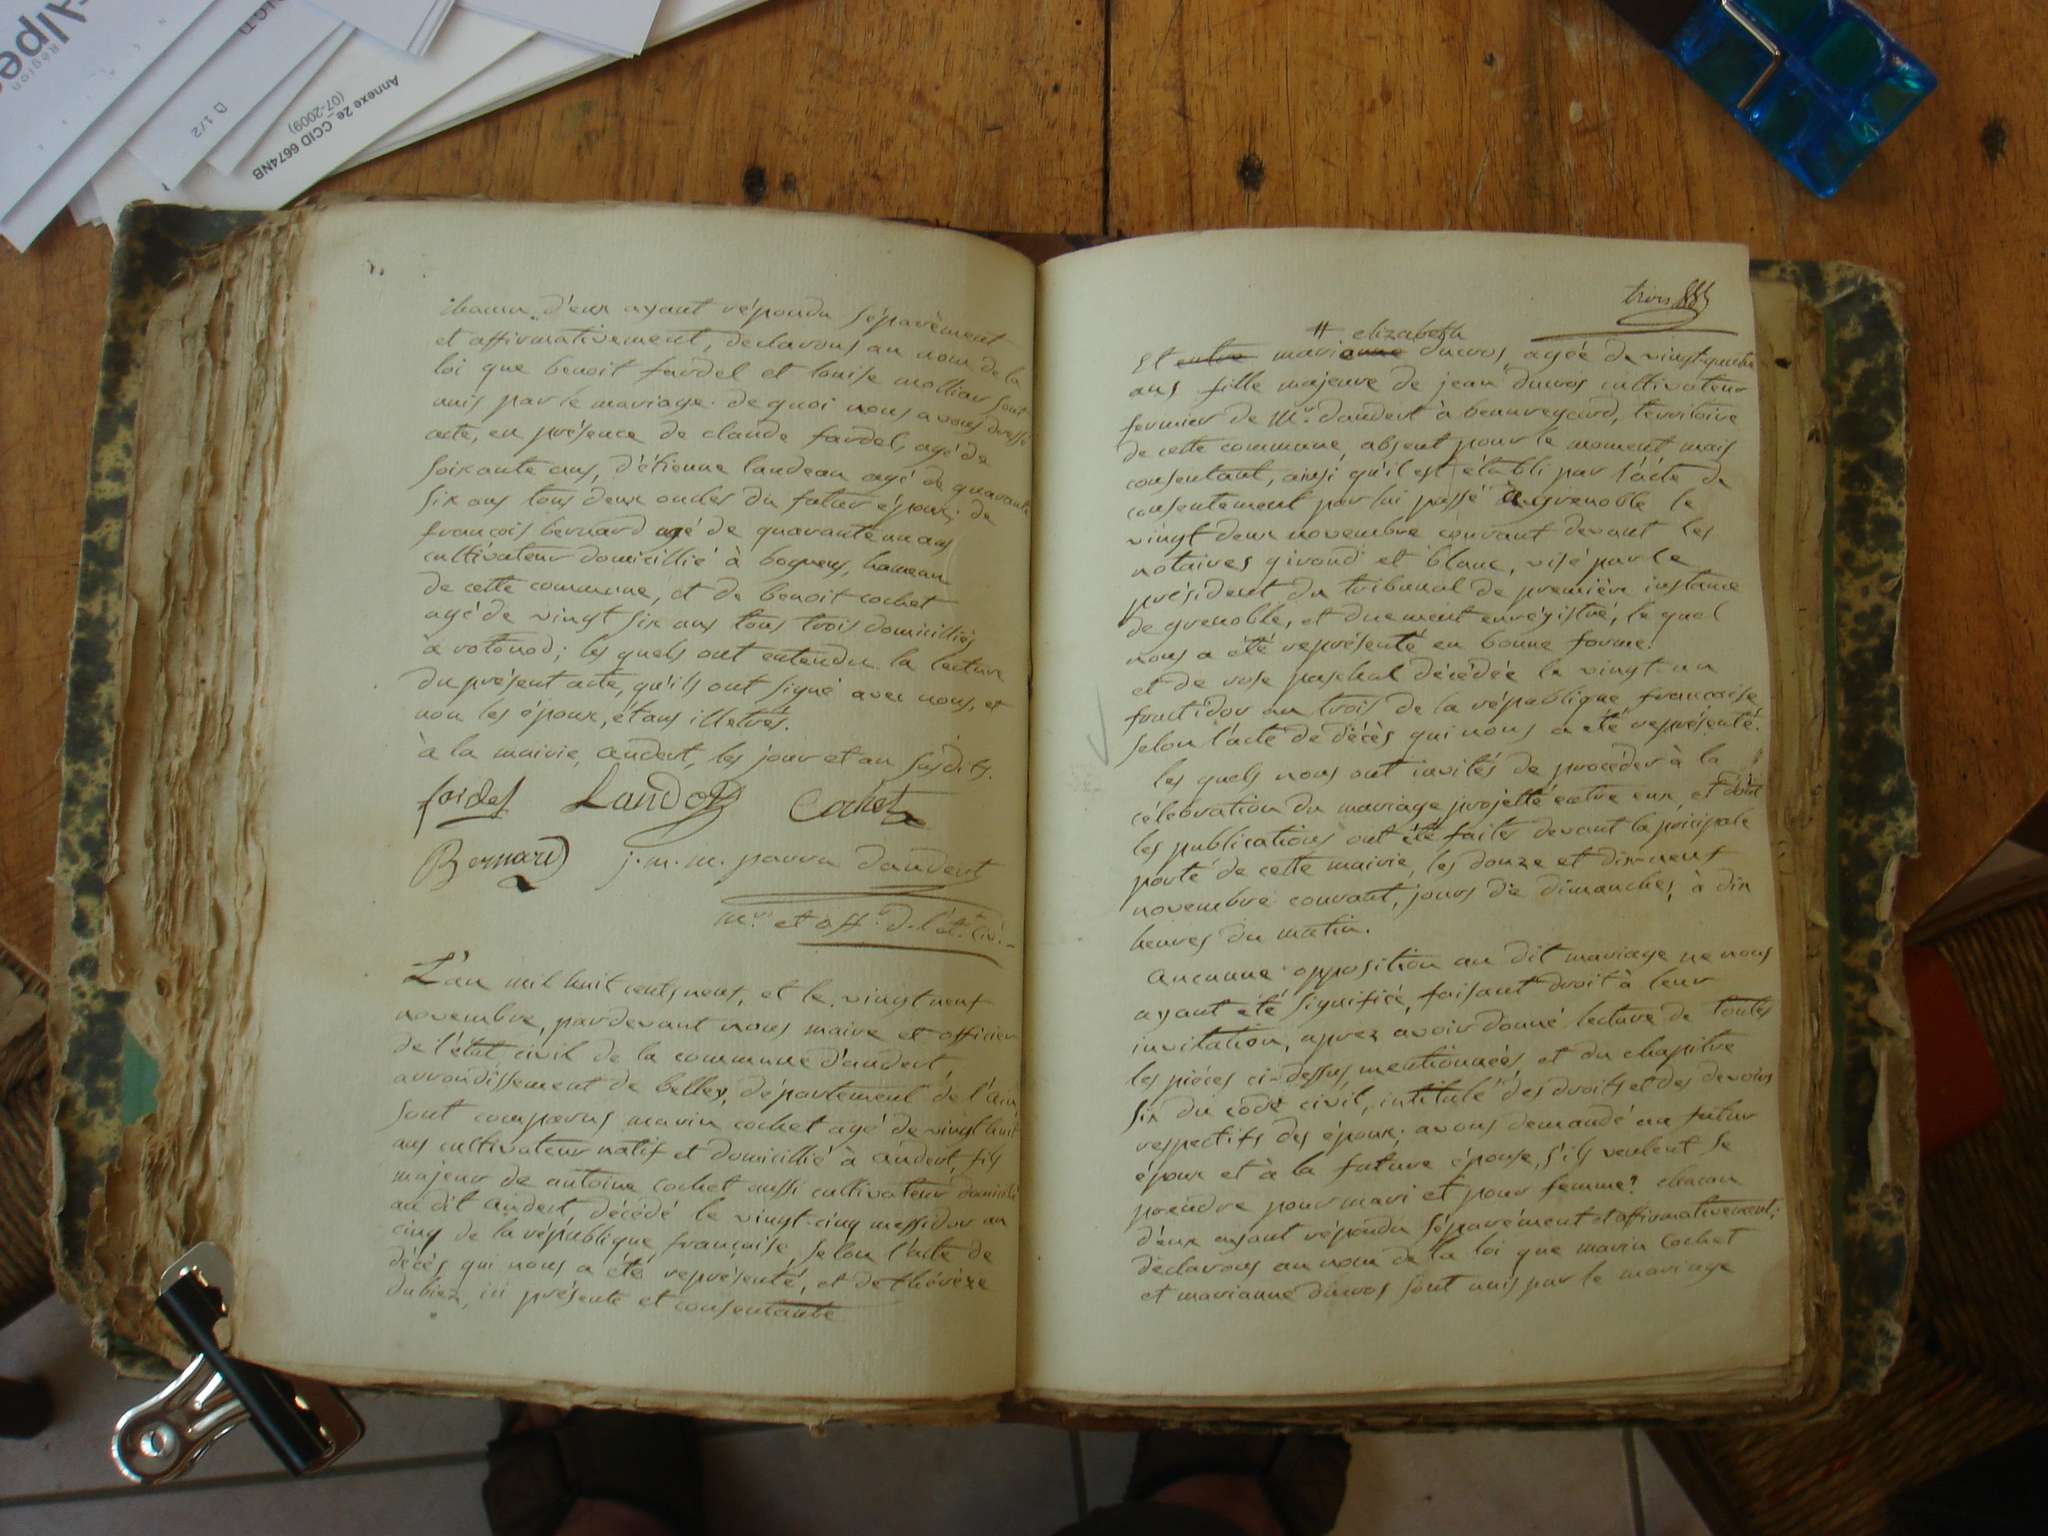 Alpes
Région
D 1/2
Annexe 2e_CCID 6674NB
(07-2009)
chacun d'eux ayant répondu séparément
et affirmativement, declarons au nom de la
loi que benoit fardel et louise molliar sont
unis par le mariage. de quoi nous avons dressé
acte, en présence de claude fardel, agé de
soixante ans, d'étienne landeau agé de quarante
six ans tous deux oncles du futur époux; de
françois bernard agé de quarante un ans
cultivateur domicillié à bogneus, hameau
de cette commune, et de benoit cochet
agé de vingt six ans tous trois domicilliés
à votonod; les quels ont entendu la lecture
du présent acte, qu'ils ont signé avec nous, et
non les époux, étans illetrés.
à la mairie, andert, les jour et an susdits.
fardel Landoz Cochet
Bernard j. m. m. parra dandert
mre et offr d. l'ét. civ.
L'an mil huit cents neuf, et le vingt neuf
novembre, pardevant nous maire et officier
de l'état civil de la commune d'andert,
arrondissement de belley, département de l'ain
sont comparus marin cochet agé de vingt huit
ans cultivateur natif et domicillié à andert, fils
majeur de antoine cochet aussi cultivateur domicilié
au dit andert, décédé le vingt-cinq messidor an
cinq de la république française, selon l'acte de
décés qui nous a été représenté, et de thérèze
dubiez, ici présente et consentante
trois
# elizabeth
Et entre marianne ducros, agée de vingt-quatre
ans fille majeure de jean ducros cultivateur
fermier de Mr. dandert à beauregard, territoire
de cette commune, absent pour le moment mais
consentant, ainsi qu'il est établi par l'acte de
consentement par lui passé à grenoble le
vingt deux novembre courant devant les
notaires giroud et blanc, visé par le
président du tribunal de première instance
de grenoble, et duement enrégistré, le quel
nous a été représenté en bonne forme.
et de rose paschal décédée le vingt-un
fructidor an trois de la république française
selon l'acte de décès qui nous a été représenté.
les quels nous ont invités de procéder à la
célébration du mariage projetté entre eux, et dont
les publications ont été faites devant la principale
porte de cette mairie, les douze et dix-neuf
novembre courant, jours de dimanches, à dix
heures du matin.
Aucunne opposition au dit mariage ne nous
ayant été signifiée, faisant droit à leur
invitation, aprez avoir donné lecture de toutes
les pièces ci-dessus mentionnées, et du chapitre
six du code civil, intitulé des droits et des devoirs
respectifs des époux; avons demandé au futur
époux et à la future épouse, s'ils veulent se
prendre pour mari et pour femme? chacun
d'eux ayant répondu séparément et affirmativement;
déclarons au nom de la loi que marin Cochet
et marianne ducros sont unis par le mariage